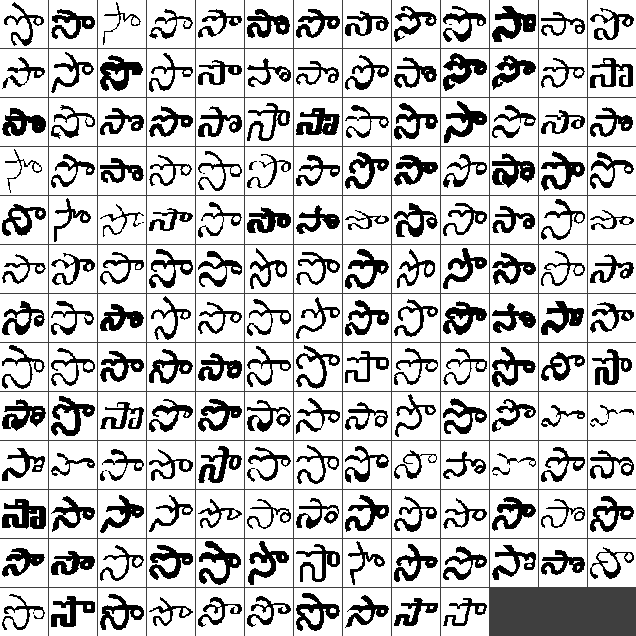 సా సా సా సా సా సా సా సా సా సా సా సా సా
సా సా సా సా సా సా సా సా సా సా సా సా సా
సా సా సా సా సా సా సా సా సా సా సా సా సా
సా సా సా సా సా సా సా సా సా సా సా సా సా
సా సా సా సా సా సా సా సా సా సా సా సా సా
సా సా సా సా సా సా సా సా సా సా సా సా సా
సా సా సా సా సా సా సా సా సా సా సా సా సా
సా సా సా సా సా సా సా సా సా సా సా సా సా
సా సా సా సా సా సా సా సా సా సా సా సా సా
సా సా సా సా సా సా సా సా సా సా సా సా సా
సా సా సా సా సా సా సా సా సా సా సా సా సా
సా సా సా సా సా సా సా సా సా సా సా సా సా
సా సా సా సా సా సా సా సా సా సా